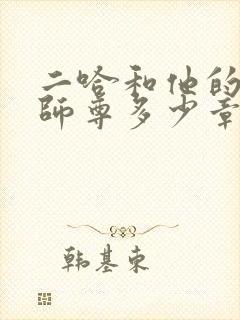 二哈和他的
師尊多少章
韩基東